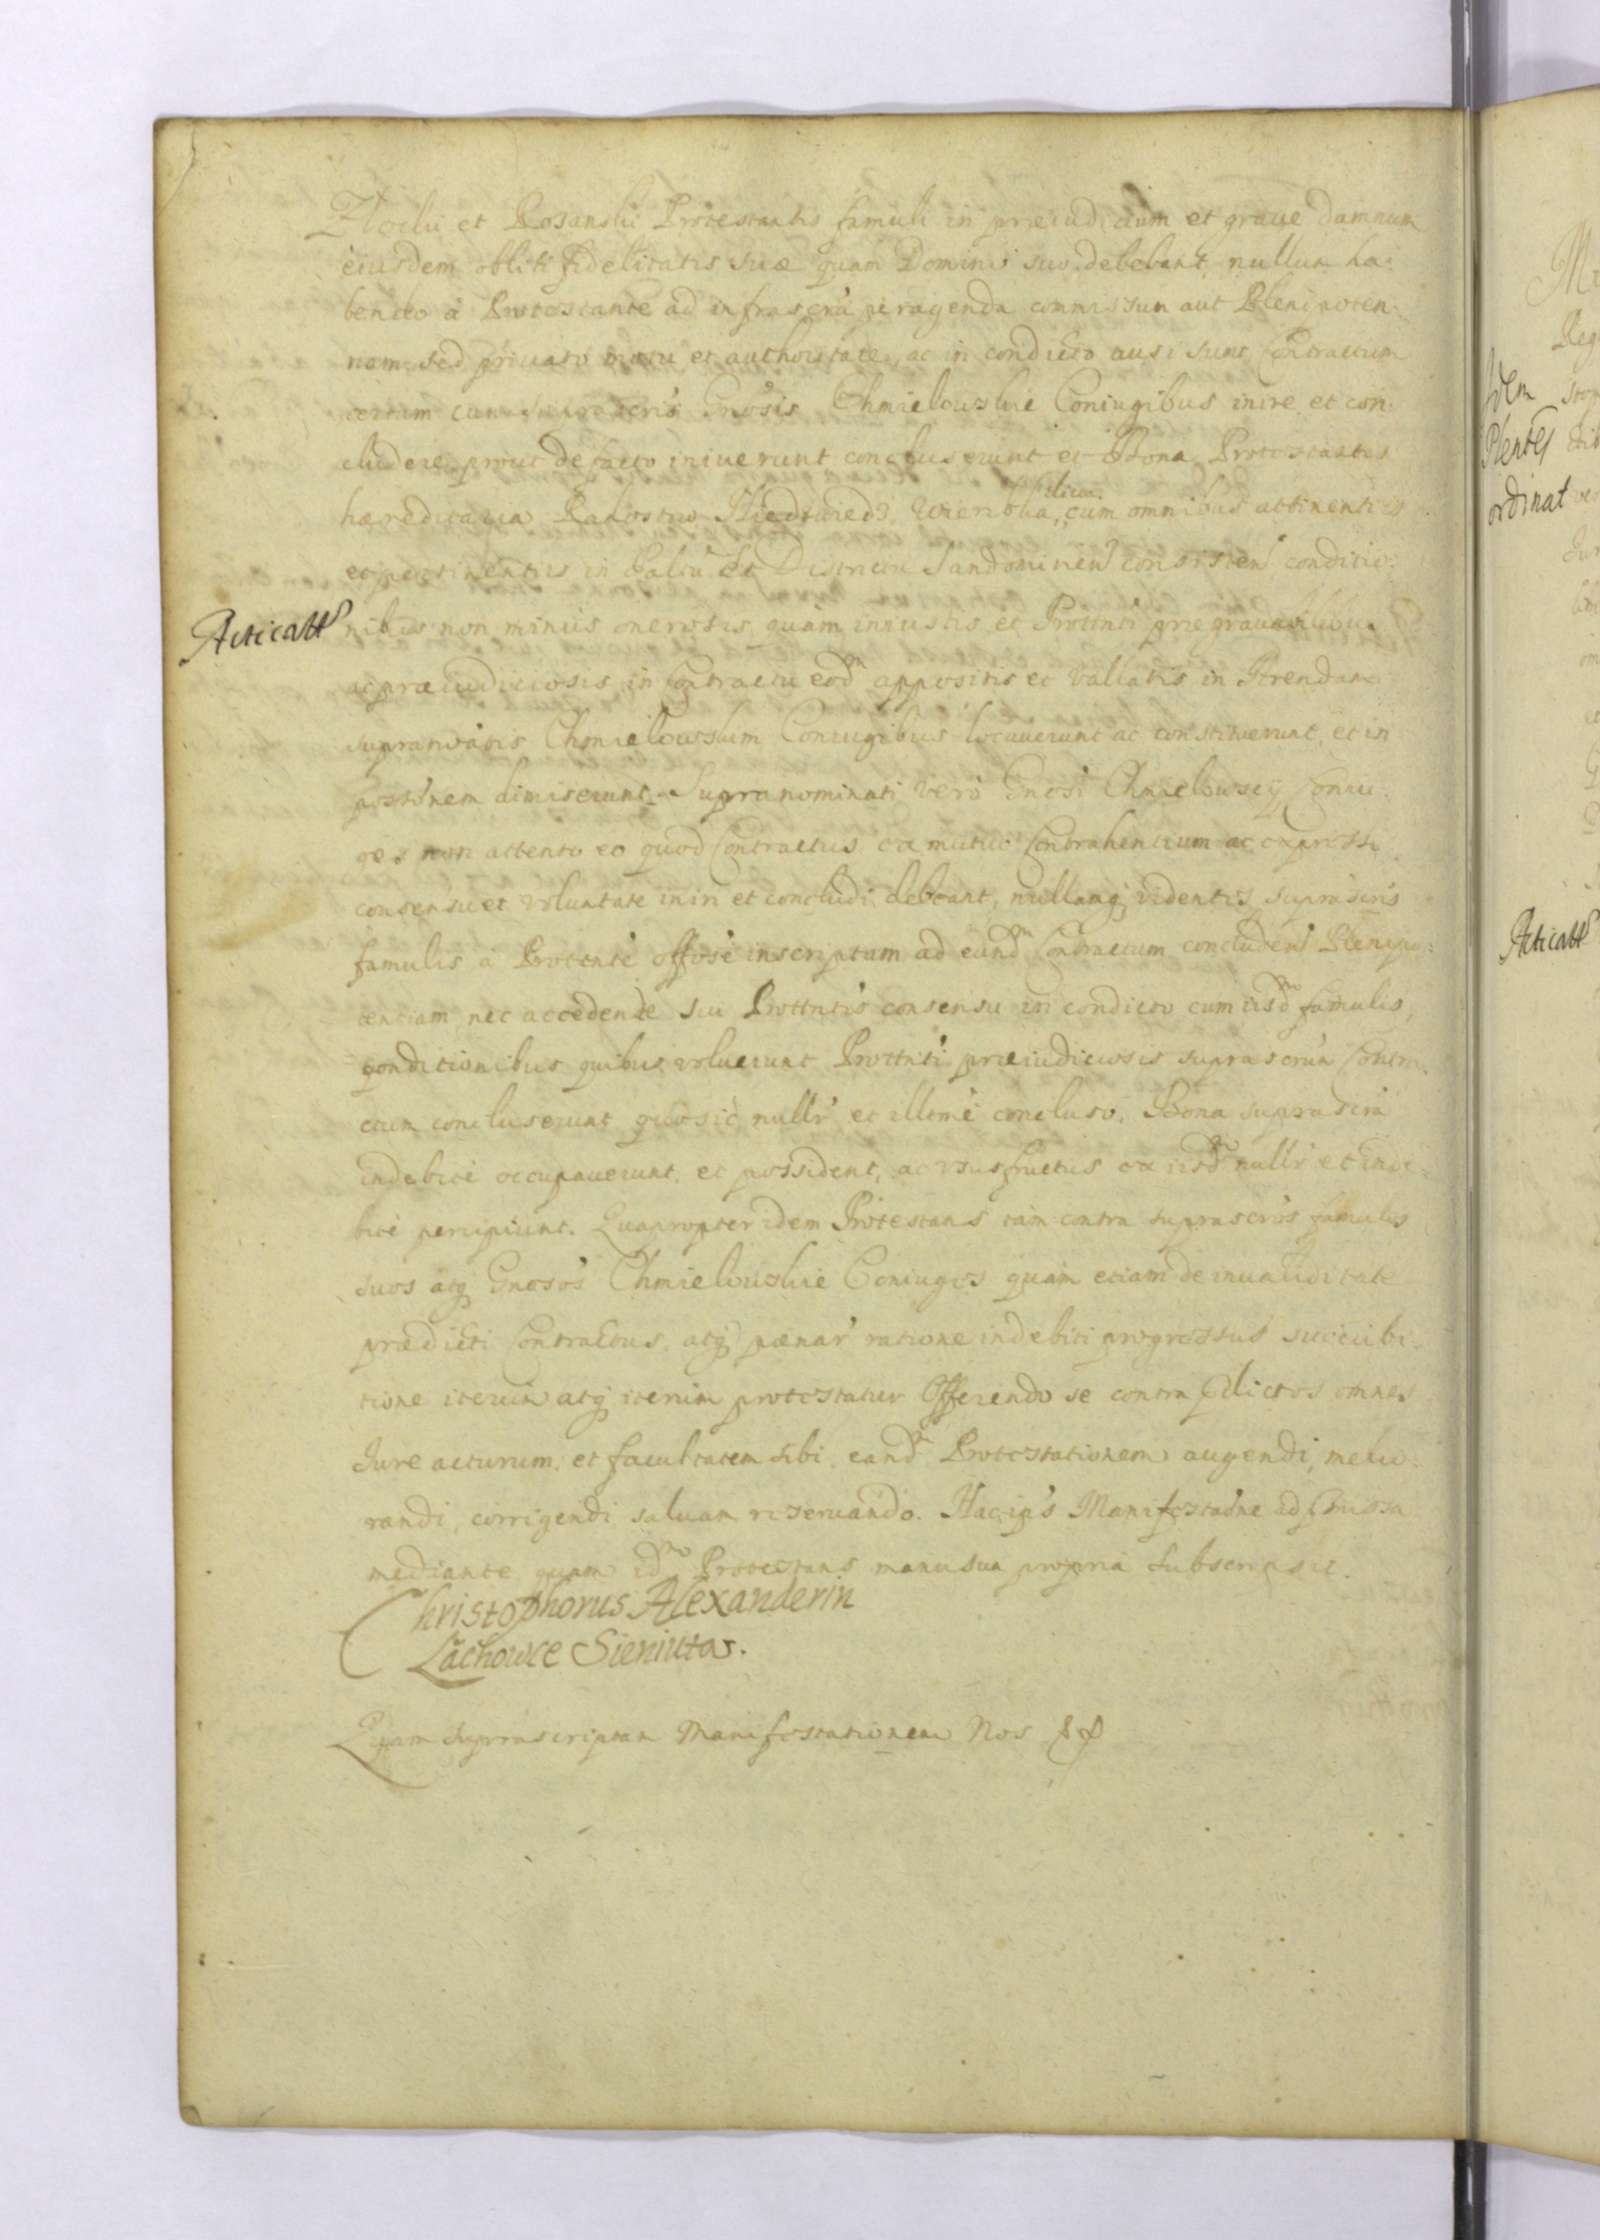 et Rosanski Protestantis famuli in præiudicium et graue damnum
eiusdem obliti fidelitatis suæ quam Domino suo debebant nullum ha:
bendo à Protestante ad infrascrã peragenda commissum aut Plenipoten:
nam sed priuato motu et authoritate, ac in condicto ausi sunt Contractum
certum cum suprascris Gnosis Chmielowskie Coniugibus inire et con:
cludere, prout de facto iniuerunt concluserunt et Bona Protestantis
hæreditaria cum omnibus attinentiis
et pertinentiis in Paltu Et Districtu Sandomirien consisten conditio:
Acticatt
nibus non minus onerosis quàm iniustis et Prottnti prægrauabilibus
ac præiudiciosis in Contractu eodm appositis et vallatis in Arendam
supranoiatis Chmielowskim Coniugibus locauerunt ac constituerunt, et in
possónem dimiserunt. Supranominati verò Gnosi Chmielowscy Coniu:
ges non attento eo quod Contractus ex mutuo Contrahentium ac expresso
consensu et voluntate iniri et concludi debeant, nullamq videntes suprascris
famulis à Protente offosè inscriptam ad eundm Contractum concluden Plenipo:
tentiam, nec accedente sui Prottntis consensu in condicto cum iisd famulis,
conditionibus quibus voluerunt Prottnti præiudiciosis suprascrũn Contra:
ctum concluserunt quo sic nullr et illmè concluso. Bona suprascrã
indebitè occupauerunt, et possident, ac vsusfructus ex iisd nullr et inde:
bitè percipiunt. Quapropter idem Protestans tàm contra suprascros famulos
suos atq Gnosos Chmielowskie Coniuges quàm etiam de inualiditate
prædicti Contractus, atq pænar ratione indebiti progressus succubi:
tione iterum atq iterum protestatur Offerendo se contra pdictos omnes
Iure acturum, et facultatem sibi eandm Protestationem augendi, melio:
randi, corrigendi saluam reseruando. Hac ips Manifestaóne ad pmissa
mediante quam idm Protestans manu sua propria subscripsit.
Christophorus Alexander in
Lachowce Sieniuta.
Quam suprascriptam Manifestationem Nos
Idem
Plentes
ordinat
Acticatt